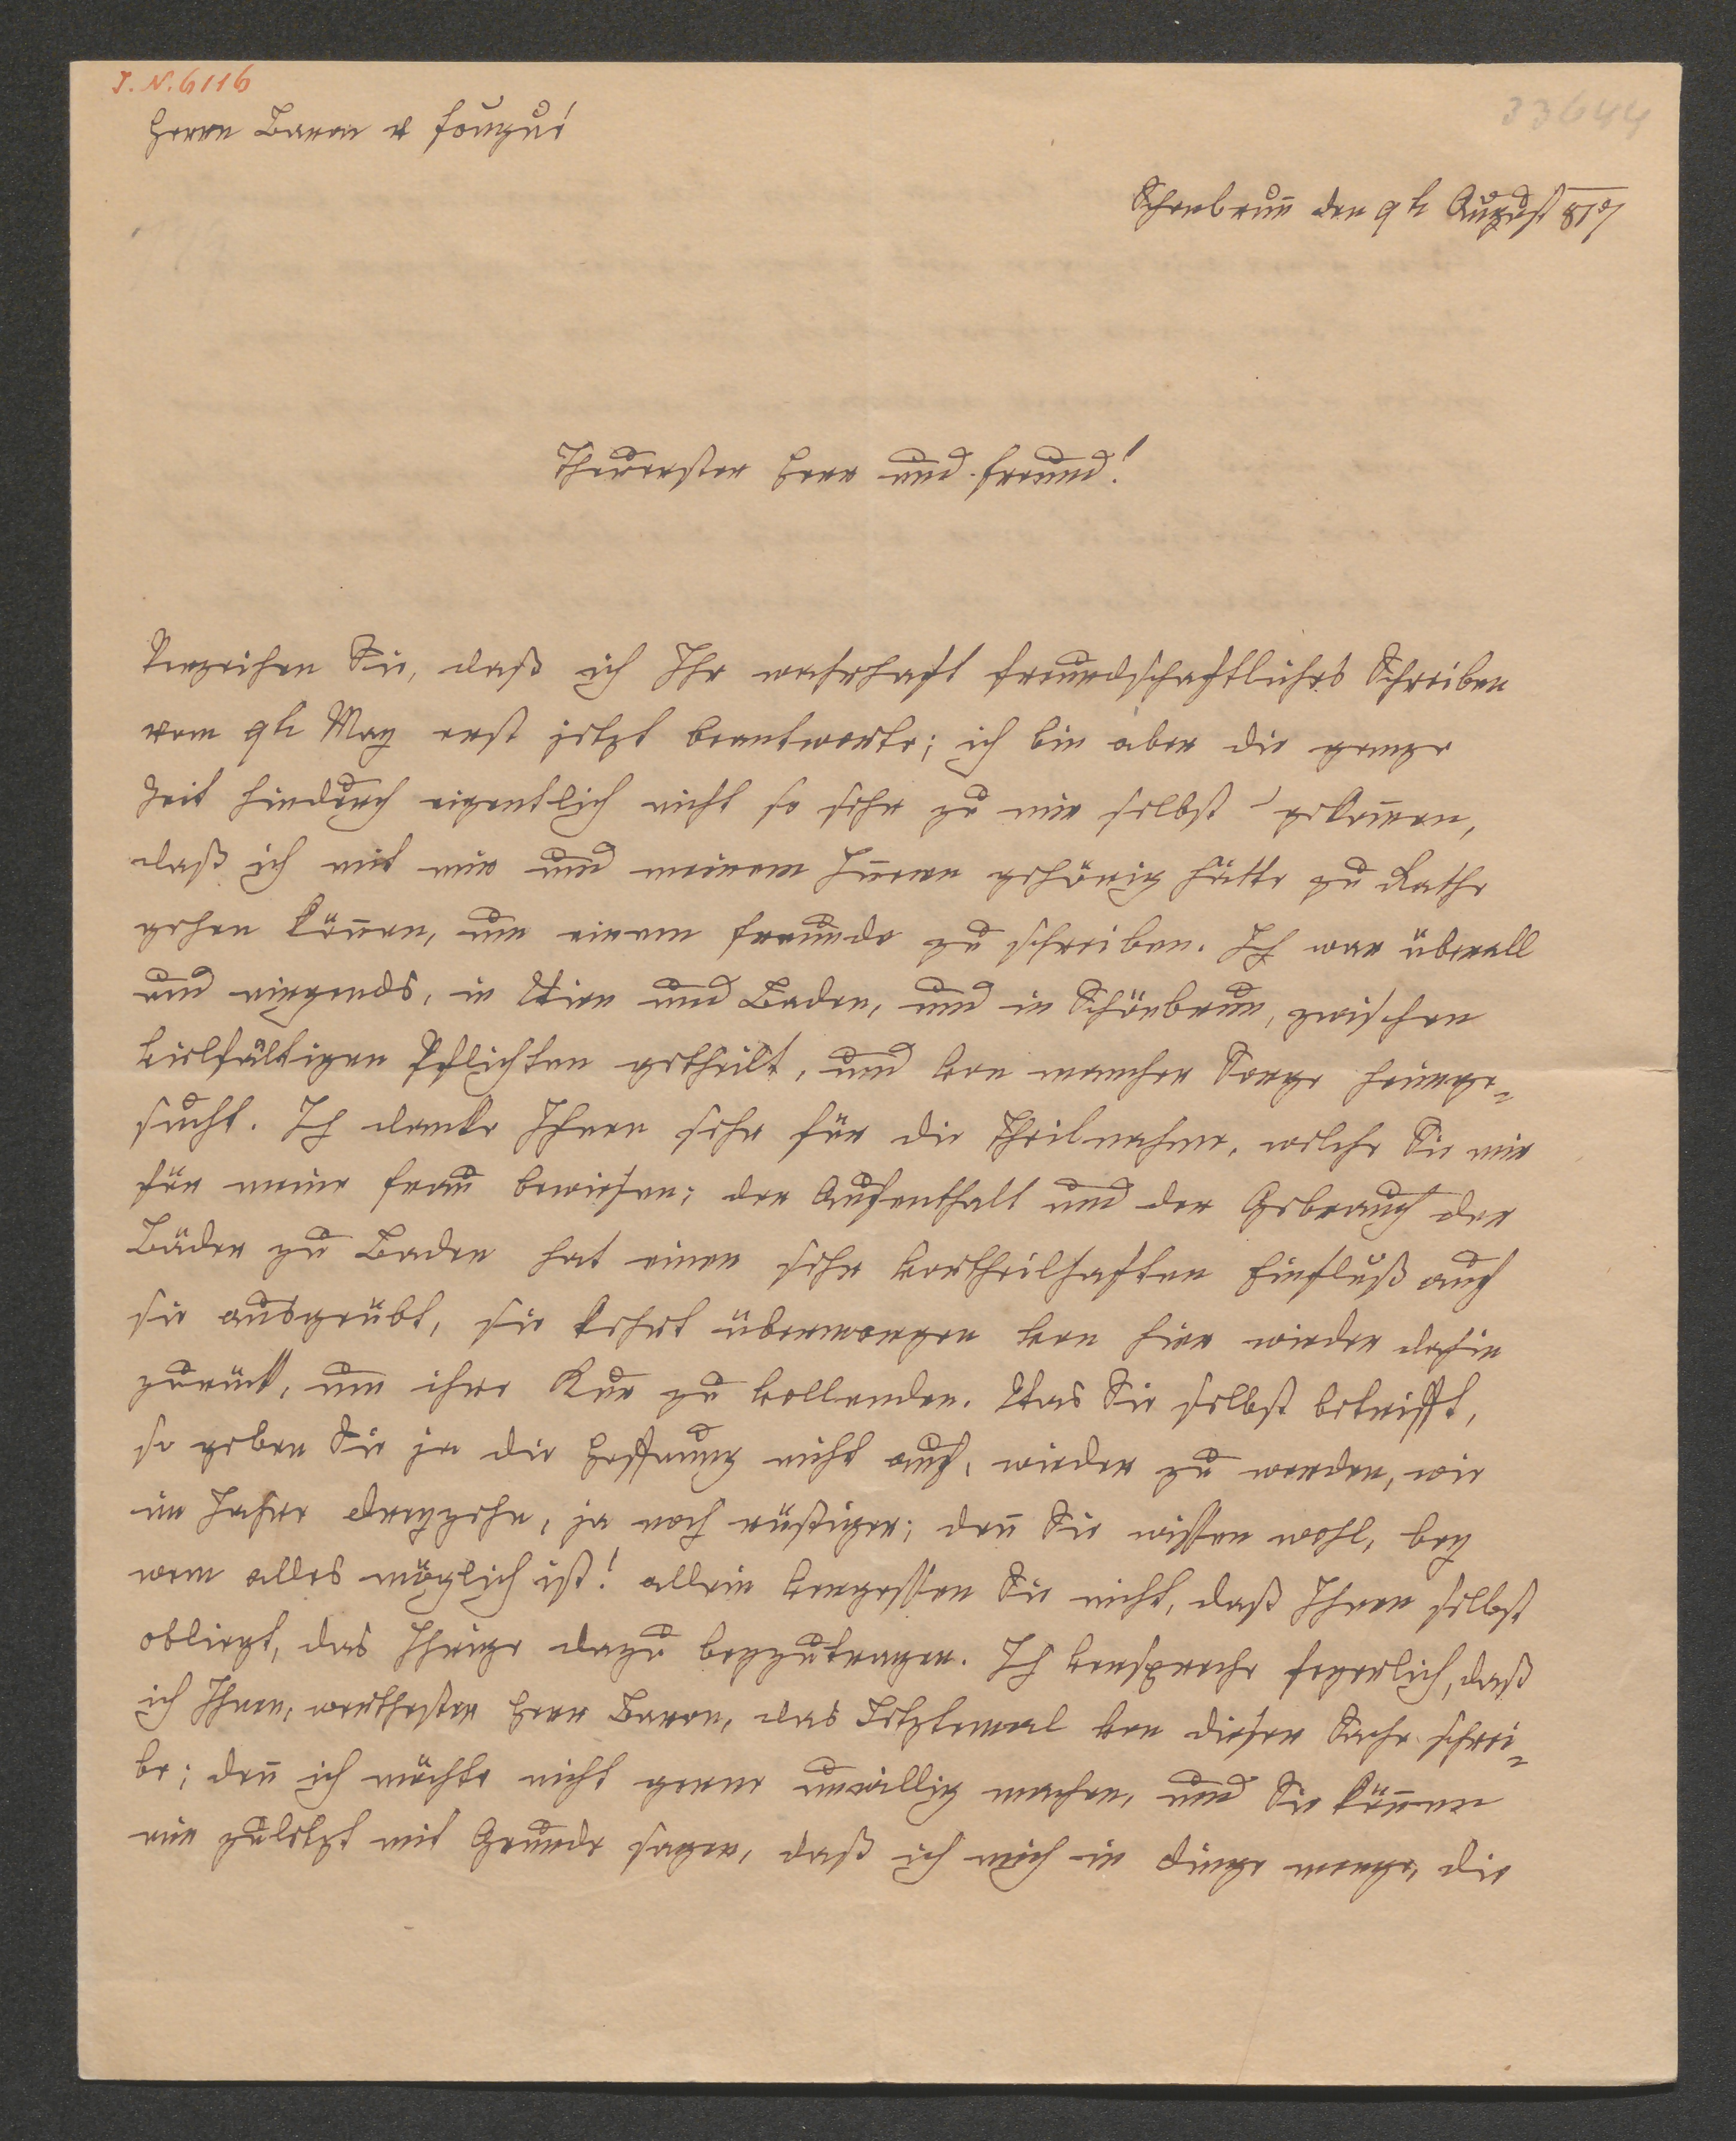 J. N. 6116
33644
Herrn Baron v Fouqué
Schenbrun̅ den 9t August 817
Theuerster Herr und Freund!
Verzeihen Sie, daß ich Ihr wahrhaft freundschaftliches Schreiben
vom 9t May erst jetzt beantworte; ich bin aber die ganze
Zeit hindurch eigentlich nicht so sehr zu mir selbst gekom̅en,
daß ich mit mir und meinem In̅ern gehörig hätte zu Rathe
gehen kön̅en, um einem Freunde zu schreiben. Ich war überall
und nirgends, in Wien und Baden, und in Schönbrun̅, zwischen
vielfältigen Pflichten getheilt, und von mancher Sorge heimge-
sucht. Ich danke Ihnen sehr für die Theilnahme, welche Sie mir
für meine Frau bewiesen; der Aufenthalt und der Gebrauch der
Bäder zu Baden hat einen sehr vortheilhaften Einfluß auf
sie ausgeübt, sie kehrt übermorgen von hier wieder dahin
zurück, um ihre Kur zu vollenden. Was Sie selbst betrifft,
so geben Sie ja die Hoffnung nicht auf, wieder zu werden, wie
im Jahre dreyzehn, ja noch rüstiger; den̅ Sie wissen wohl, bey
wem alles möglich ist! allein vergessen Sie nicht, daß Ihnen selbst
obliegt, das Ihrige dazu beyzutragen. Ich verspreche feyerlich, daß
ich Ihnen, werthester Herr Baron, das Letztemal von dieser Sache schrei-
be; den̅ ich möchte nicht gerne unwillig machen, und Sie kön̅en
mir zuletzt mit Grunde sagen, daß ich mich in Dinge menge, die